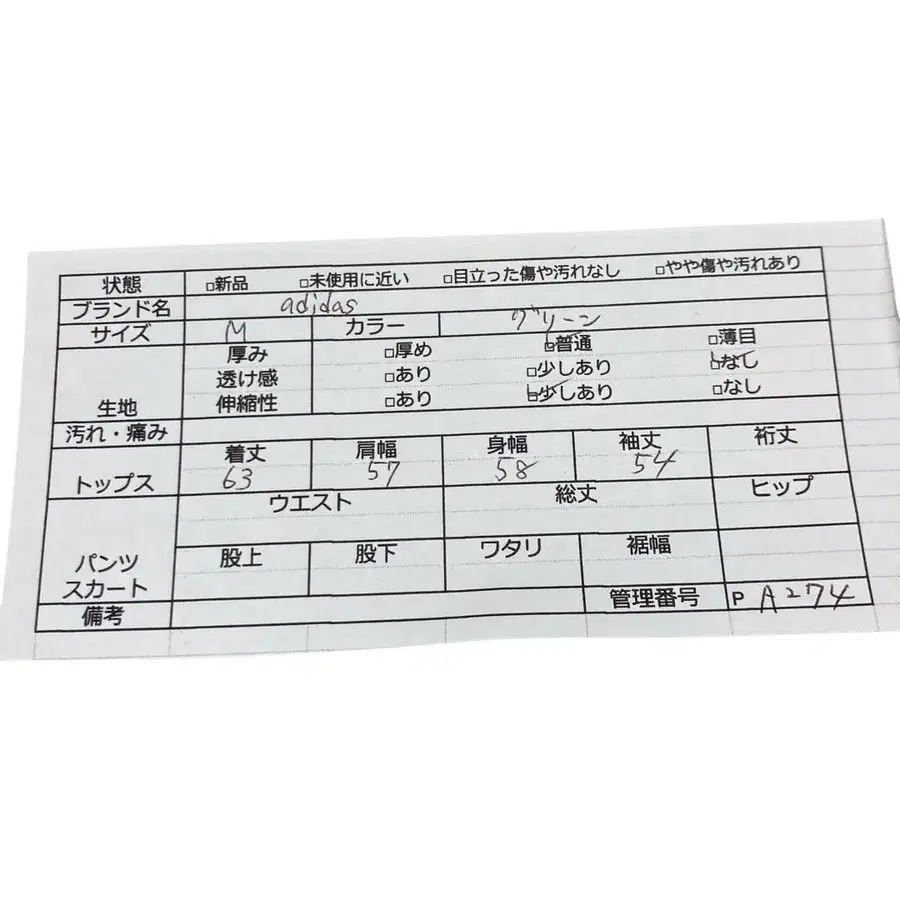 状態 □新品 □未使用に近い □目立った傷や汚れなし □やや傷や汚れあり
ブランド名 adidas
サイズ M カラー グリーン
生地 厚み □厚め ☑普通 □薄目
透け感 □あり □少しあり ☑なし
伸縮性 □あり ☑少しあり □なし
汚れ・痛み
トップス 着丈 肩幅 身幅 袖丈 裄丈
63 57 58 54
パンツ スカート ウエスト 総丈 ヒップ
股上 股下 ワタリ 裾幅
備考 管理番号 P A274